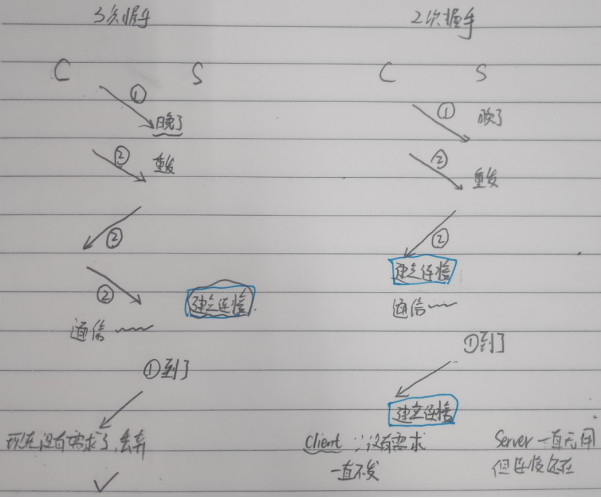 3次握手
2次握手
C
S
C
S
①
晚了
①
晚了
②
重发
②
重发
②
②
建立连接
②
建立连接
通信
通信
①到了
①到了
建立连接
现在没有需求了,丢弃
Client:没有需求
一直不发
Server一直无用
但连接还在